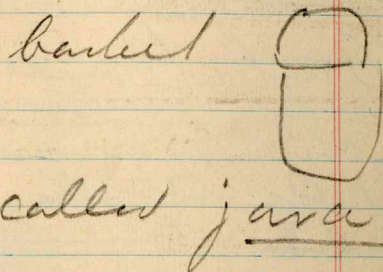 basket
called java